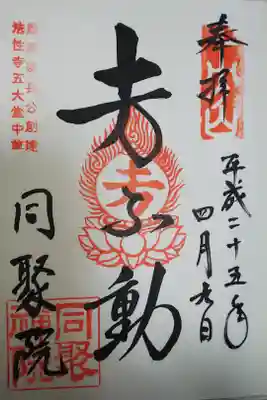 奉拝
平成二十五年
四月 日
不動
公創建
法性寺五大堂中尊
同聚院
同聚
禅院